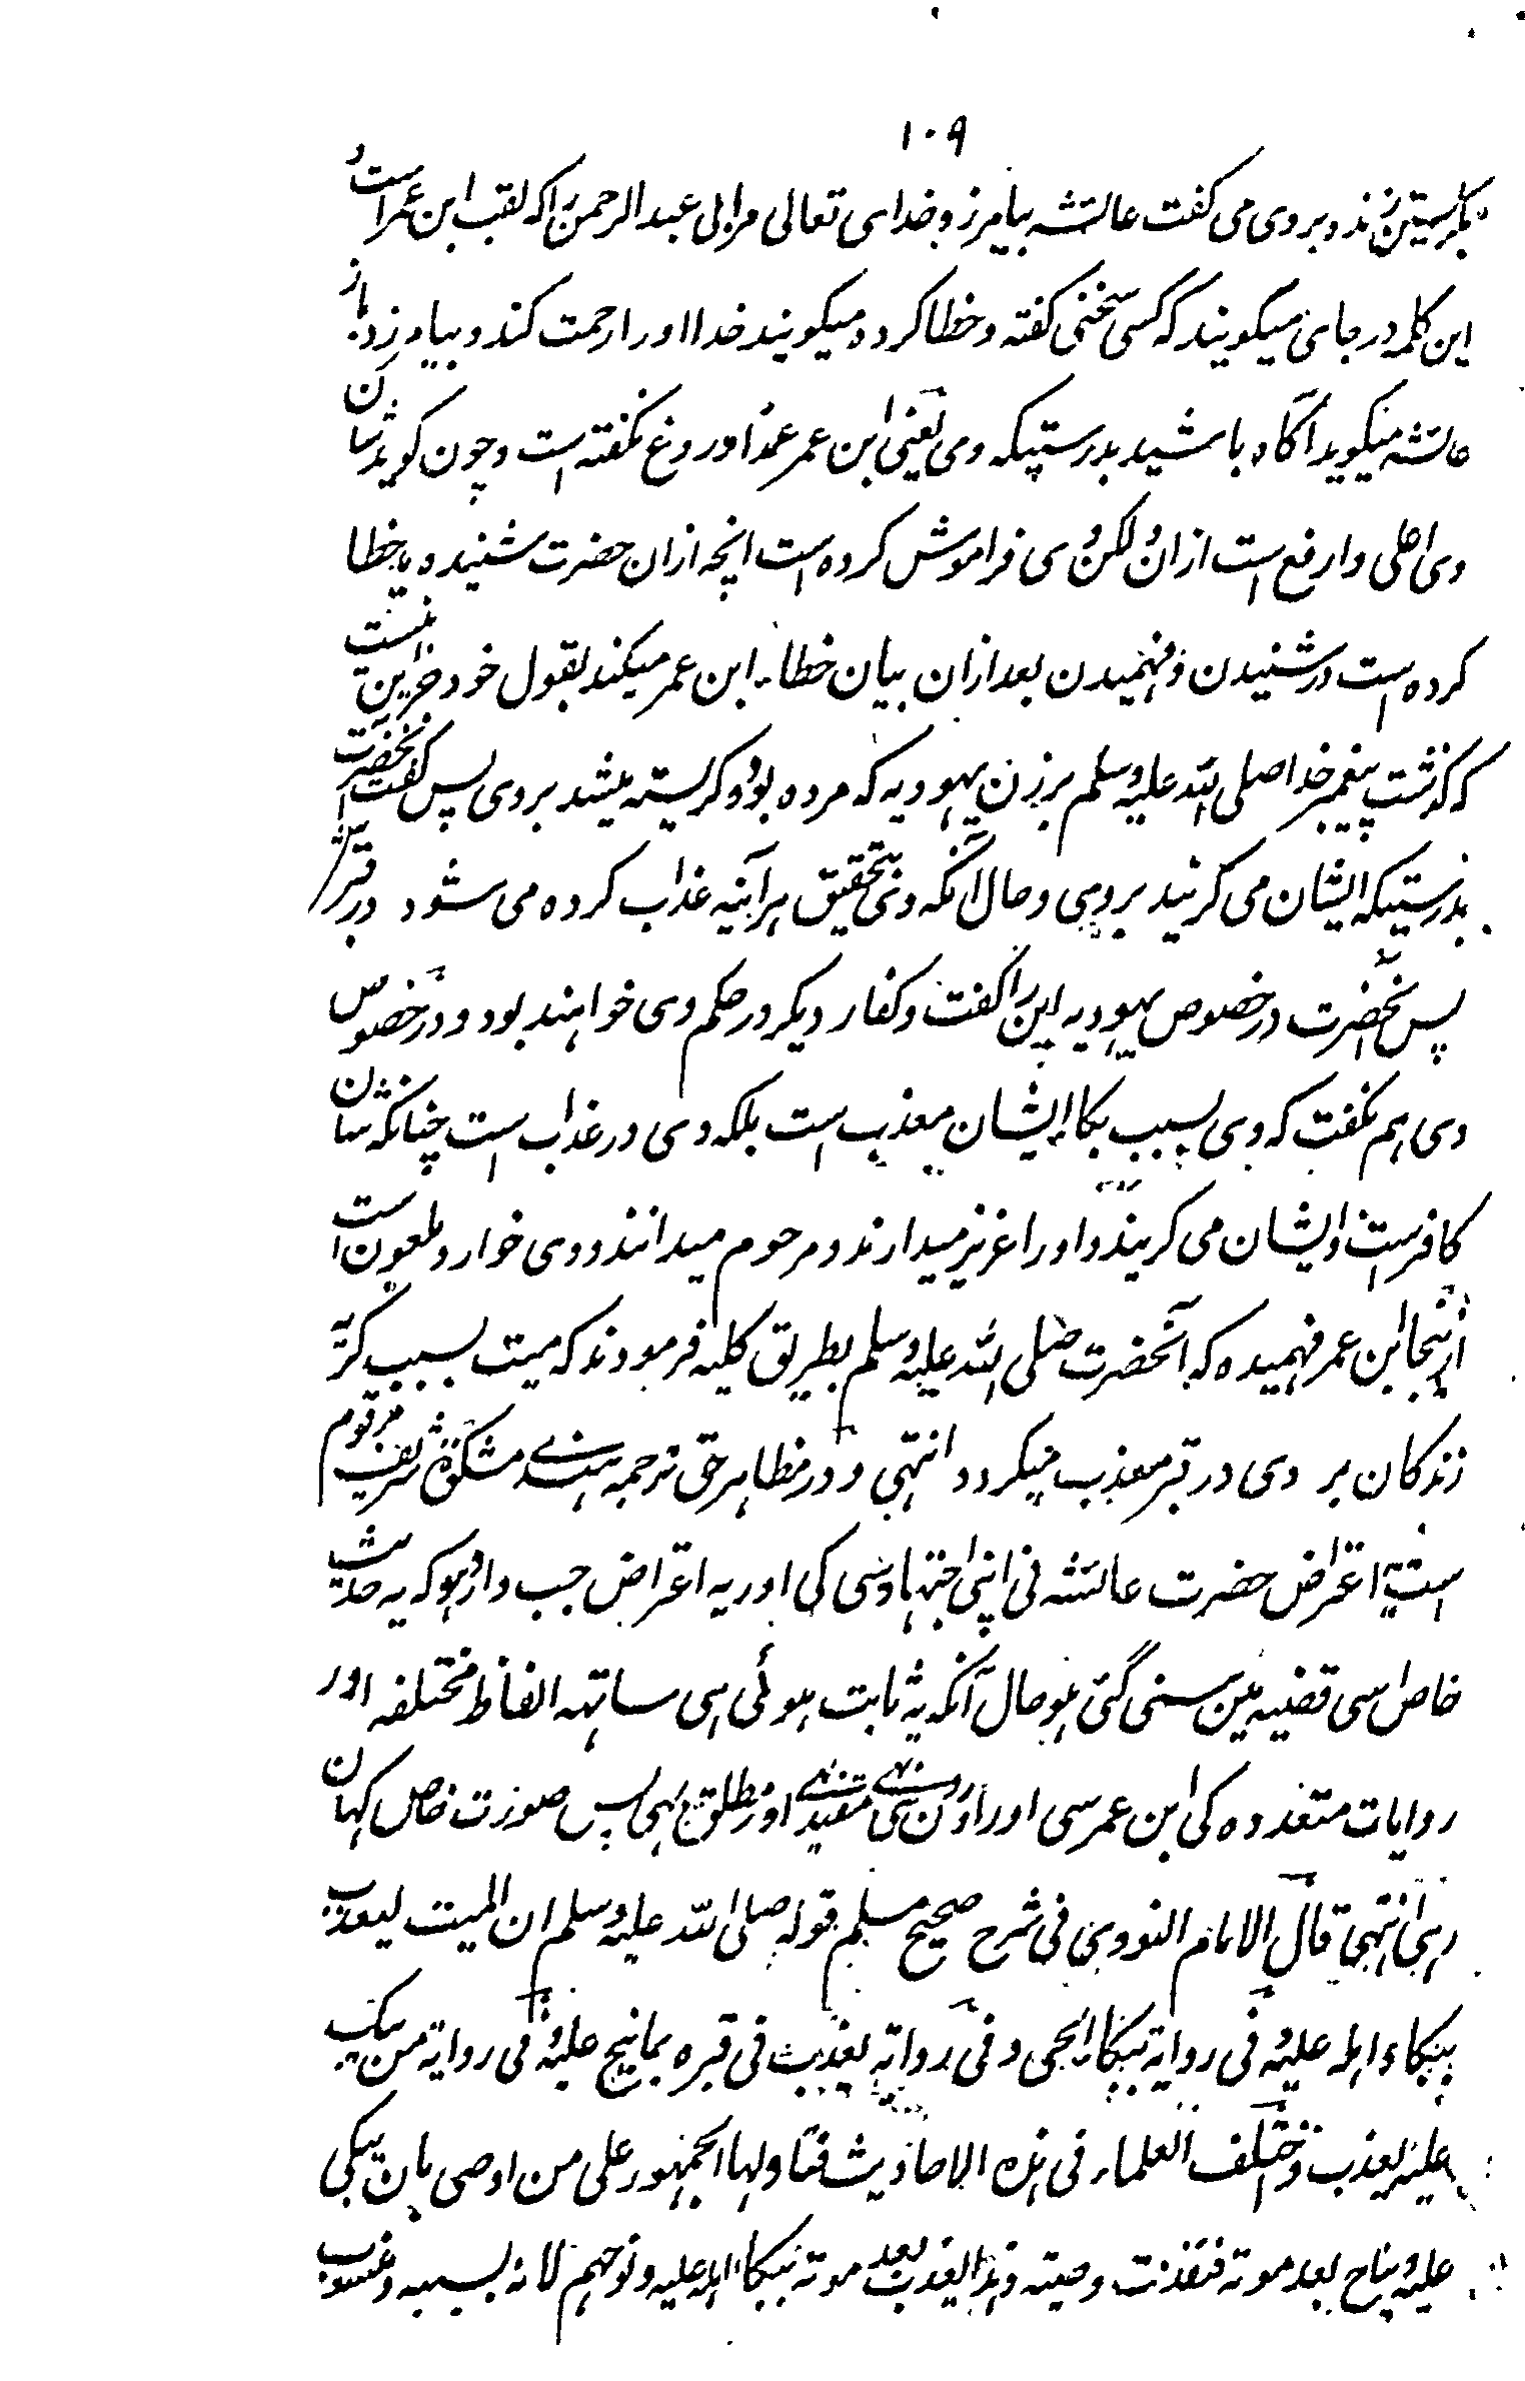 ۱۰۹
بگریستن زنده بر وی می گفت عائشه بیامرزد خدای تعالی مر ابی عبد الرحمن را که لقب ابن عمر است و
این کلمه در جای میگویند که کسی سخنی گفته و خطا کرده میگویند خدا او را رحمت کند و بیامرزد باز
عائشه میگوید آگاه باشید بدرستیکه وی یعنی ابن عمر عمدا دروغ نگفته است و چون گوید شان
وی اعلی و ارفع است ازان و لکن وی فراموش کرده است انچه ازان حضرت شنیده یا خطا
کرده است در شنیدن و فهمیدن بعد ازان بیان خطاء ابن عمر میکند بقول خود جز این نیست
که گذشت پیغمبر خدا صلی الله علیه وسلم بر زن یهودیه که مرده بود و گریسته میشد بر وی پس گفت آنحضرت
بدرستیکه ایشان می گریند بر وی و حال آنکه وی بتحقیق هرآینه عذاب کرده می شود در قبر
پس آنحضرت در خصوص یهودیه این را گفت و کفار دیگر در حکم وی خواهند بود و در خصوص
وی هم نگفت که وی بسبب بکاء ایشان معذب است بلکه وی در عذاب است چنانکه شان
کافر است و ایشان می گریند و او را عزیز میدارند و مرحوم میدانند و وی خوار و ملعون است
ازینجا ابن عمر فهمیده که آنحضرت صلی الله علیه وسلم بطریق کلیه فرمودند که میت بسبب گریه
زندگان بر وی در قبر معذب میگردد انتهی و در مظاهر حق ترجمه هندے مشکوة شریف مرقوم
است یہ اعتراض حضرت عائشه نی اپنی اجتهاد سی کی اور یه اعتراض جب وارد ہو که یه حدیث
خاص اسی قضیه مین سنی گئی ہو حال آنکه یه ثابت ہوئی ہی ساتهه الفاظ مختلفه اور
روایات متعدده کی ابن عمر سی اور اورون سی بهی مقید بهی اور مطلق بهی پس صورت خاص کہان
رہی انتهی قال الامام النووی فی شرح صحیح مسلم قوله صلی الله علیه وسلم ان المیت لیعذب
ببکاء اهله علیه و فی روایة ببکاء الحی و فی روایة یعذب فی قبره بما نیح علیه و فی روایة من یبک
علیه یعذب و اختلف العلماء فی هذه الاحادیث فتاولها الجمهور علی من اوصی بان یبکی
علیه و یناح بعد موته فنفذت وصیته فهذا یعذب بعد موته ببکاء اهله علیه و نوحهم لانه بسببه و منسوب